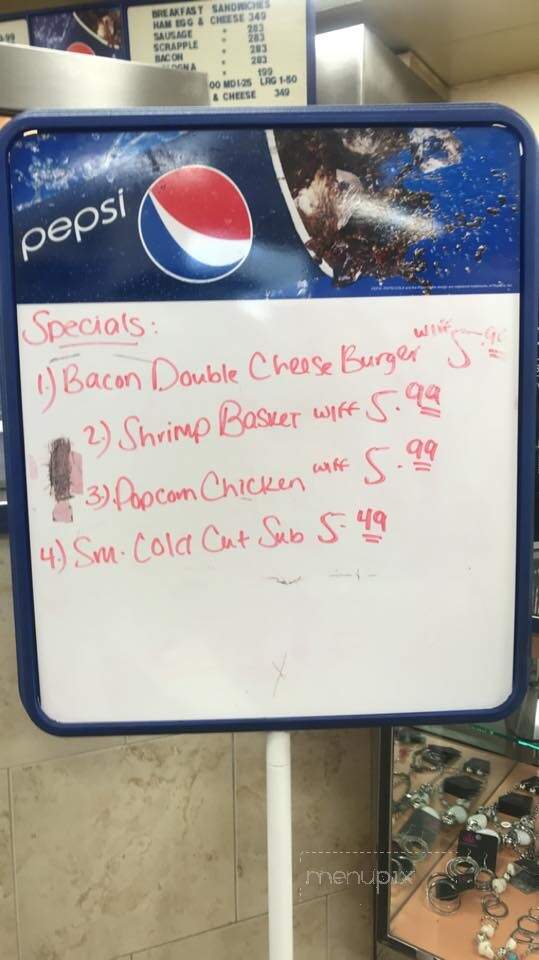 BREAKFAST SANDWICHES
HAM EGG & CHEESE 349
SAUSAGE " 283
SCRAPPLE " 283
BACON " 283
" 283
199
00 MD1-25 LRG 1-50
& CHEESE 349
pepsi
Specials:
1.) Bacon Double Cheese Burger w/ff 5.
2.) Shrimp Basket w/ff 5.99
3.) Popcorn Chicken w/ff 5.99
4.) Sm. Cold Cut Sub 5.49
menupix